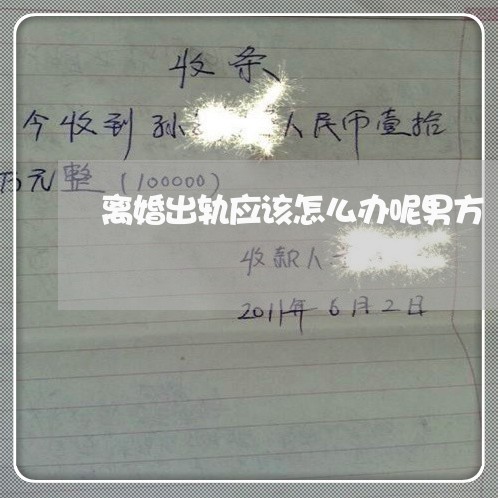 收条
今收到孙 人民币壹拾
万元整(100000)
离婚出轨应该怎么办呢男方
收款人
2011年6月2日